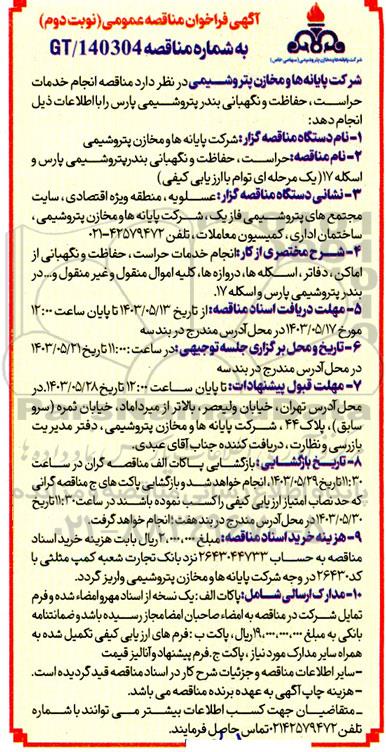 آگهی فراخوان مناقصه عمومی (نوبت دوم)
به شماره مناقصه GT/140304
شرکت پایانه ها و مخازن پتروشیمی (سهامی خاص)
شرکت پایانه ها و مخازن پتروشیمی در نظر دارد مناقصه انجام خدمات
حراست، حفاظت و نگهبانی بندر پتروشیمی پارس را با اطلاعات ذیل
انجام دهد:
۱- نام دستگاه مناقصه گزار: شرکت پایانه ها و مخازن پتروشیمی
۲- نام مناقصه: حراست، حفاظت و نگهبانی بندر پتروشیمی پارس و
اسکله ۱۷ (یک مرحله ای توام با ارزیابی کیفی)
۳- نشانی دستگاه مناقصه گزار: عسلویه، منطقه ویژه اقتصادی، سایت
مجتمع های پتروشیمی فاز یک، شرکت پایانه ها و مخازن پتروشیمی،
ساختمان اداری، کمیسیون معاملات، تلفن ۴۲۵۷۹۴۷۲-۰۲۱
۴- شرح مختصری از کار: انجام خدمات حراست، حفاظت و نگهبانی از
اماکن، دفاتر، اسکله ها، دروازه ها، کلیه اموال منقول و غیر منقول و... در
بندر پتروشیمی پارس و اسکله ۱۷.
۵- مهلت دریافت اسناد مناقصه: از تاریخ ۱۴۰۳/۰۵/۱۳ تا پایان ساعت ۱۲:۰۰
مورخ ۱۴۰۳/۰۵/۱۷ در محل آدرس مندرج در بند سه
۶- تاریخ و محل برگزاری جلسه توجیهی: در ساعت: ۱۱:۰۰ تاریخ ۱۴۰۳/۰۵/۲۱
در محل آدرس مندرج در بند سه
۷- مهلت قبول پیشنهادات: تا پایان ساعت ۱۲:۰۰ تاریخ ۱۴۰۳/۰۵/۲۸ در
محل آدرس تهران، خیابان ولیعصر، بالاتر از میرداماد، خیابان ثمره (سرو
سابق)، پلاک ۴۴، شرکت پایانه ها و مخازن پتروشیمی، دفتر مدیریت
بازرسی و نظارت، دریافت کننده جناب آقای عبدی.
۸- تاریخ بازگشایی: بازگشایی پاکات الف مناقصه گران در ساعت
۱۱:۳۰ تاریخ ۱۴۰۳/۰۵/۲۹ انجام خواهد شد و بازگشایی پاکت های ج مناقصه گرانی
که حد نصاب امتیاز ارزیابی کیفی را کسب نموده باشند در ساعت ۱۱:۳۰ تاریخ
۱۴۰۳/۰۵/۳۰ در محل آدرس مندرج در بند هفت: انجام خواهد گرفت.
۹- هزینه خرید اسناد مناقصه: مبلغ ۲,۰۰۰,۰۰۰ ریال بابت هزینه خرید اسناد
مناقصه به حساب ۲۶۴۳۰۴۴۷۳۳ نزد بانک تجارت شعبه کمپ مثلثی با
کد ۲۶۴۳۰ در وجه شرکت پایانه ها و مخازن پتروشیمی واریز گردد.
۱۰- مدارک ارسالی شامل: پاکات الف: یک نسخه از اسناد مهر و امضاء شده و فرم
تمایل شرکت در مناقصه به امضاء صاحبان امضا مجاز رسیده باشد و ضمانتنامه
بانکی به مبلغ ۱۹,۰۰۰,۰۰۰,۰۰۰ ریال، پاکت ب: فرم های ارزیابی کیفی تکمیل شده به
همراه سایر مدارک مورد نیاز، پاکت ج. فرم پیشنهاد و آنالیز قیمت
- سایر اطلاعات مناقصه و جزئیات شرح کار در اسناد مناقصه قید گردیده است.
- هزینه چاپ آگهی به عهده برنده مناقصه می باشد.
- متقاضیان جهت کسب اطلاعات بیشتر می توانند با شماره
تلفن ۰۲۱۴۲۵۷۹۴۷۲ تماس حاصل فرمایند.